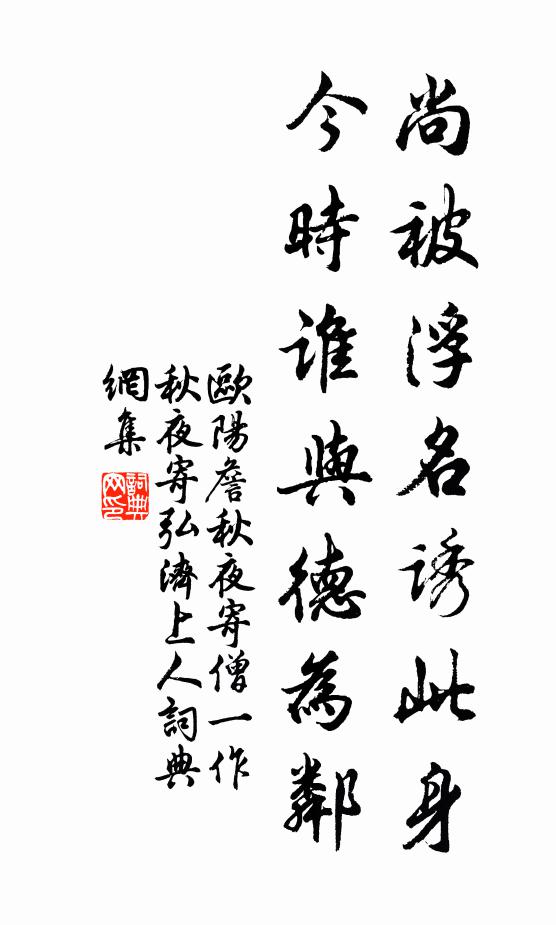 尚被浮名誘此身
今時誰與德為鄰
歐陽詹秋夜寄僧一作
秋夜寄弘濟上人詞典
網集
詞典
网印